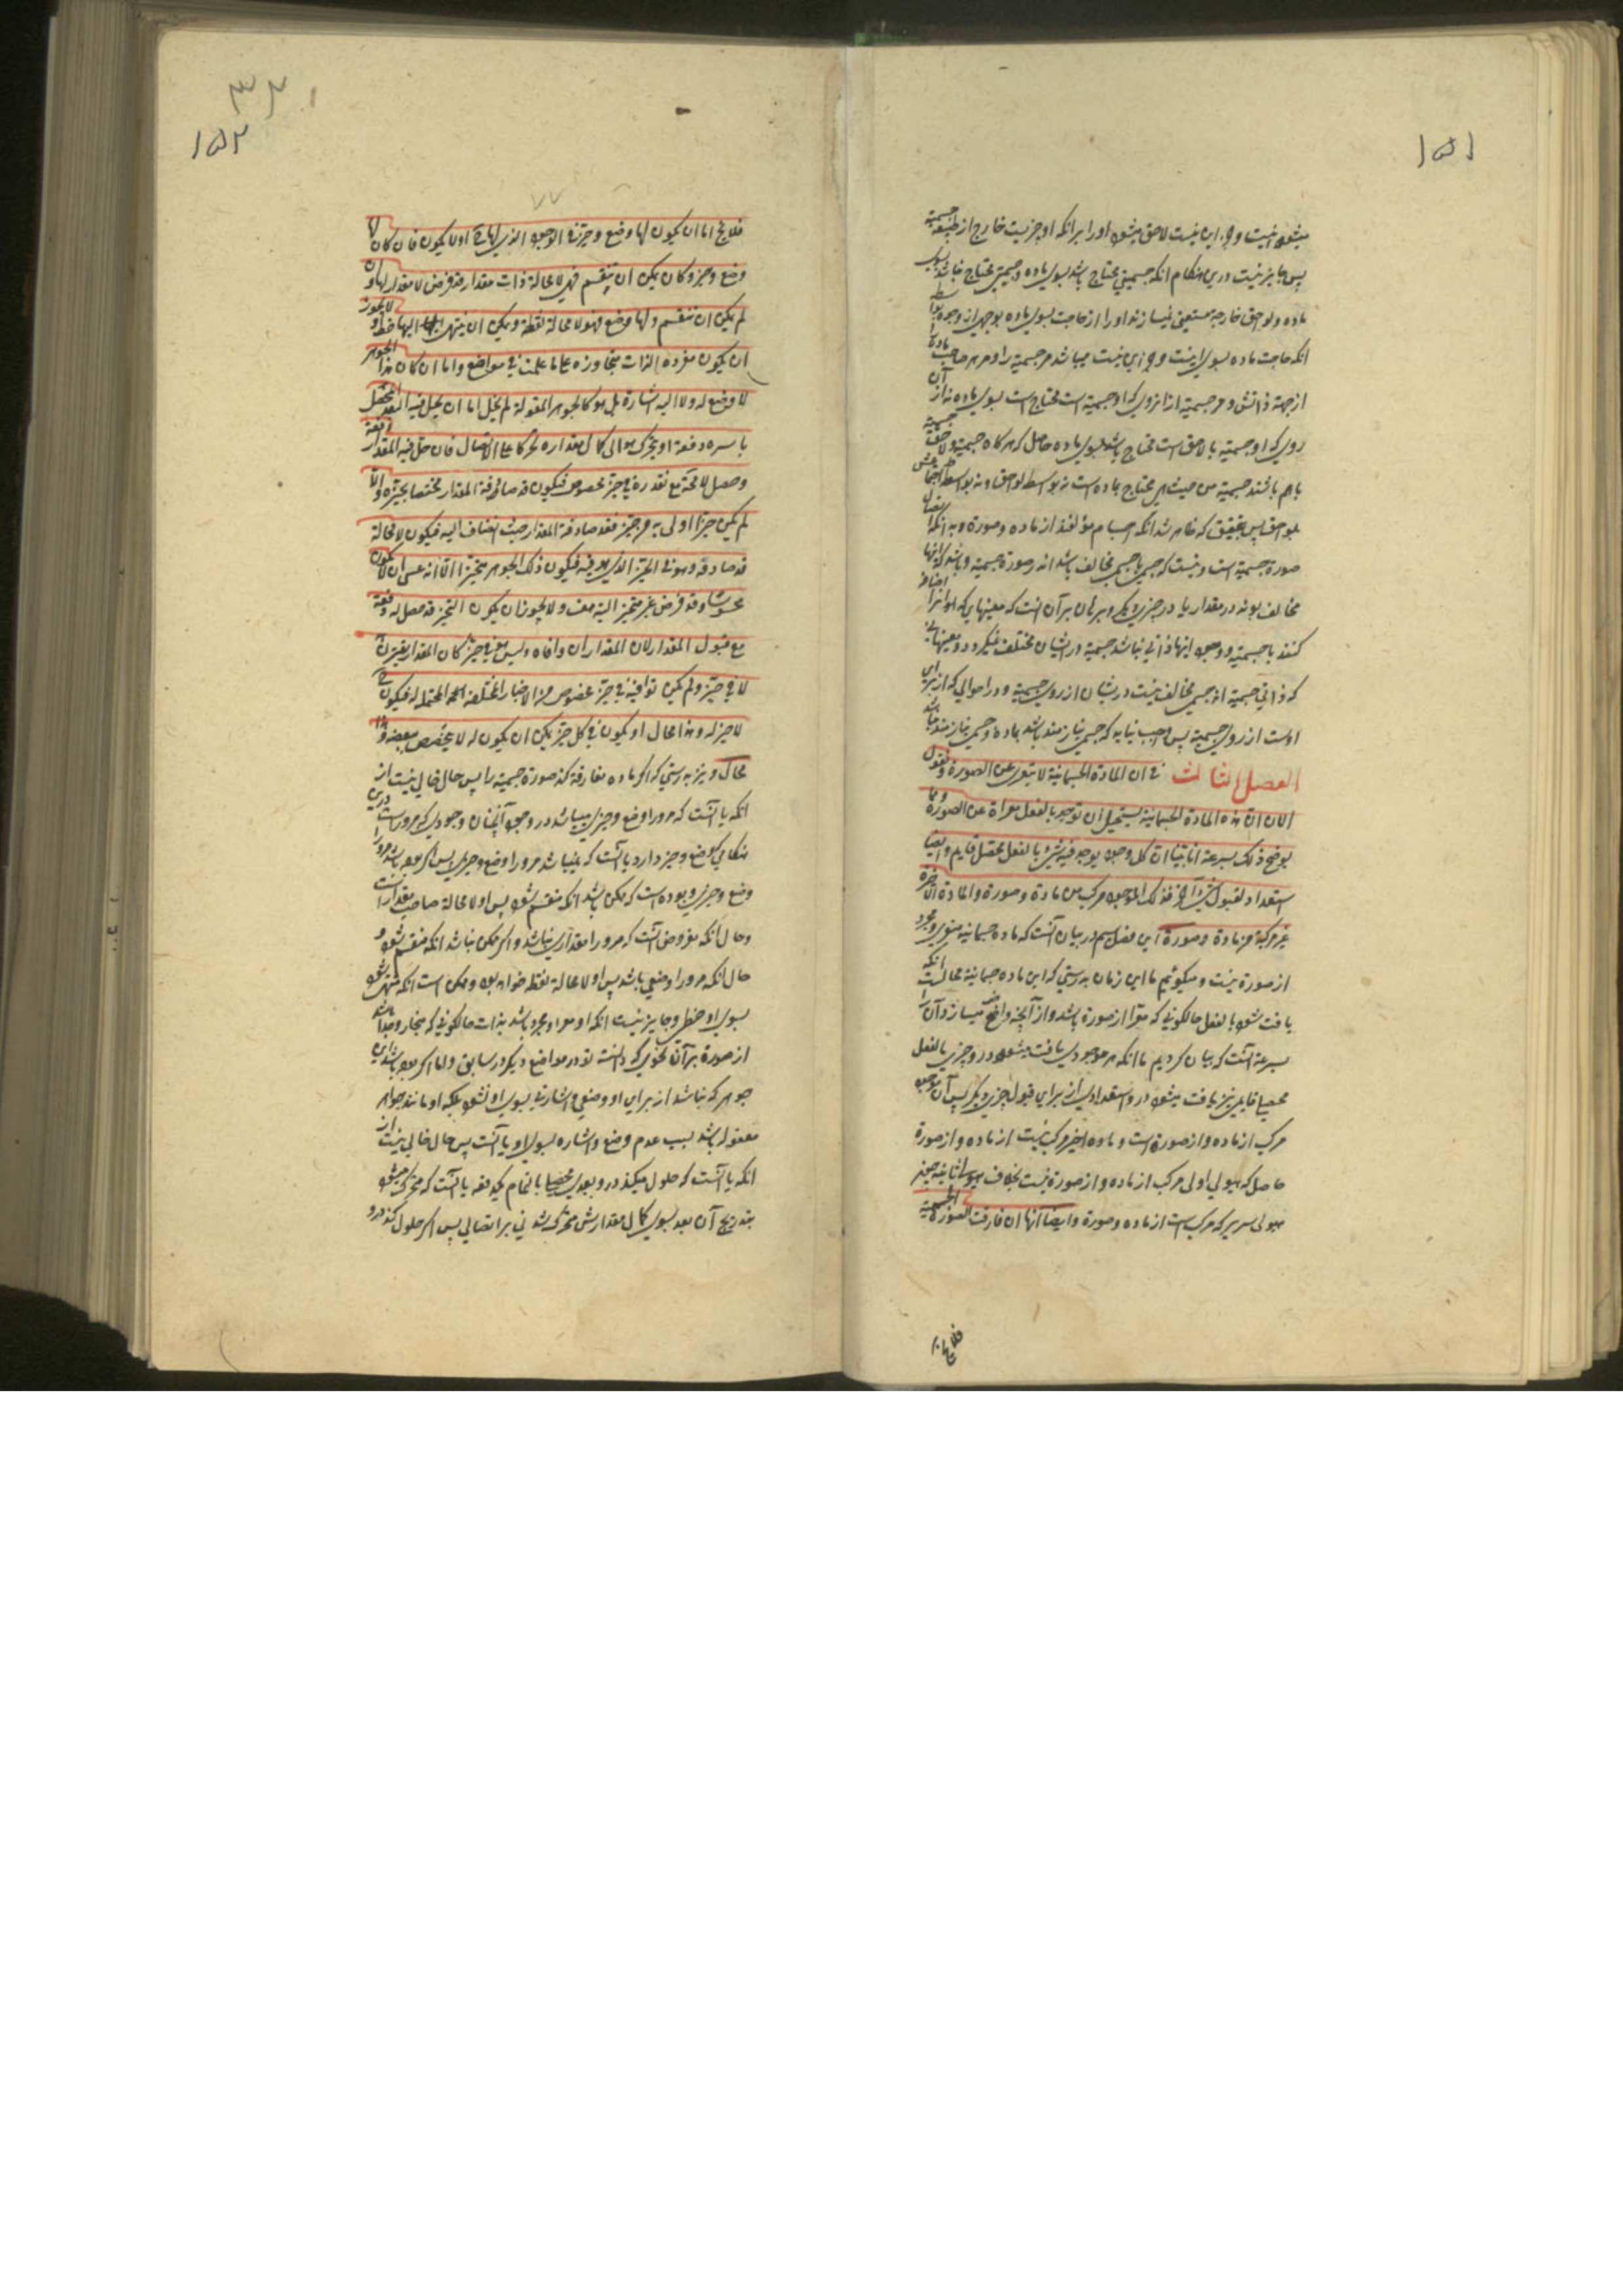 ۱۵۱
میشود نیست و این نیست لاحق میشود او را بر آنکه او چیزیست خارج از طبیعة جسمیة
پس جایز نیست درین هنکام انکه جسمیتی محتاج باشد بسوی ماده و جسمیتی محتاج نباشد بسوی
ماده و لواحق خارجیه مستغنی نمیسازند او را از حاجت بسوی ماده بوجهی از وجوه بواسطه
انکه حاجت ماده بسوی اینست و این نیست میباشد مر جسمیة را و مر هر صاحب مادة را
از جهة ذاتش و مر جسمیة از انروی که او جسمیة است محتاج است بسوی ماده نه از آن
روی که او جسمیة با لاحق است محتاج باشد بسوی ماده حاصل که هرکاه جسمیة و لاحق جسمیة
باهم باشند جسمیة من حیث هی محتاج بماده است نه بواسطه لواحق و نه بواسطه اجتماعش
بلواحق پس بتحقیق که ظاهر شد انکه اجسام مؤلفند از ماده و صورة
صورة جسمیة است و نیست که جسمی با جسمی مخالف باشد در صورة جسمیة و باشد که اینها
مخالف بوند در مقدار یا در چیزی دیکر و برهان بر آن انست که معینهایی که او انرا اضافه
کنند با جسمیة و وجود اینها ذاتی نباشد جسمیة در ایشان مختلف نمیکردد و معینهایی
که ذاتی جسمیة اند جسمی مخالف نیست در ایشان از روی جسمیة و در احوالی که از برای
اوست از روی جسمیة پس واجب نیاید که جسمی نیازمند باشد بماده و جسمی نیازمند نباشد
الفصل الثالث فی ان المادة الجسمانیة لا تتعری عن الصورة و نقول
الان ان هذه المادة الجسمانیة یستحیل ان توجد بالفعل معراة عن الصورة و مما
یوضح ذلک بسرعة انا بینا ان کل وجود یوجد فیه شیء بالفعل محصل قایم و ایضا
استعداد لقبول شیء آخر فذلک الموجود مرکب من مادة و صورة و المادة الاخیرة
غیر مرکبة من مادة و صورة این فصل سیم در بیان آنست که ماده جسمانیه متعری و مجرد
از صورة نیست و میکوئیم ما این زمان بدرستی که این ماده جسمانیة محالست انکه
یافت شود بالفعل حالکونی که معرا از صورة باشد و از آنچه واضح میسازد آن را
بسرعة آنست که بیان کردیم ما انکه هر موجودی یافت میشود درو چیزی بالفعل
محصیا قایمی نیز یافت میشود درو استعدادی از برای قبول چیزی دیکر پس آن موجود
مرکب از ماده و از صورة است و ماده اخیر مرکب نیست از ماده و از صورة
حاصل که هیولی اولی مرکب از ماده و از صورة نیست بخلاف هیولی ثانیه یعنی
هیولی سریر که مرکب است از ماده و صورة و ایضا انها ان فارقت الصورة الجسمیة
فلا یخ اما
۳۳۰
۱۵۲
۷۷
فلا یخ اما ان یکون لها وضع و حیز فی الوجود الذی لها ح او لا یکون فان کان لها
وضع و حیز و کان یمکن ان ینقسم فهی لا محالة ذات مقدار و قد فرض لا مقدار لها و ان
لم یمکن ان تنقسم و لها وضع فهی لا محالة نقطة و یمکن ان ینتهی الیها خط و لا یجوز
ان یکون مفردة الذات منحازة علی ما علمت فی مواضع و اما ان کان هذا الجوهر
لا وضع له و لا الیه اشارة بل هو کالجواهر المعقولة لم یخل اما ان یحل فیه البعد المحصل
باسره دفعة او یتحرک هو الی کمال مقداره تحرکا علی الاتصال فان حل فیه المقدار دفعة
و حصل لا محة مع تقدره فی حیز مخصوص فیکون قد صادفه المقدار مختصا بحیزه و الا
لم یکن حیز اولی به من حیز فقد صادفه المقدار حیث انضاف الیه فیکون لا محالة
قد صادفه و هو فی الحیز الذی هو فیه فیکون ذلک الجوهر متحیزا الا انه عسی ان لا یکون
محسوسا و قد فرض غیر متحیز البتة هف و لا یجوز ان یکون التحیز قد حصل له دفعة
مع قبول المقدار لان المقدار ان وافاه و لیس هو فی حیز کان المقدار یقترن به
لا فی حیز و لم یکن یوافیه فی حیز مخصوص من الاحیاز المختلفة المحتملة له فیکون ح
لا حیز له و هذا محال او یکون فی کل حیز یمکن ان یکون له لا یخصص ببعضه و هذا
محال و نیز بدرستی که اکر ماده مفارقة کند صورة جسمیة را پس حال خالی نیست از
انکه یا آنست که مر او را وضع و حیزی میباشد در وجود آنچنان وجودی که مر اوراست درین
هنکامی که وضع و حیز دارد یا آنست که نمیباشد مر او را وضع و حیزی پس اکر بوده باشد مر او را
وضع و حیزی و بوده است که ممکن باشد انکه منقسم شود پس او لا محالة صاحب مقدار است
و حال آنکه مفروض آنست که مر او را مقداری نباشد و اکر ممکن نباشد انکه منقسم شود و
حال انکه مر او را وضعی باشد پس او لا محالة نقطه خواهد بود و ممکن است انکه منتهی شود
بسوی او خطی و جایز نیست انکه او معرا و مجرد باشد بذات حالکونی که منحاز و جدا باشد
از صورة بر آن نحوی که دانسته تو در مواضع دیکر در سابق و اما اکر بوده باشد این
جوهر که نباشد از برای او وضعی و اشارتی بسوی او نشود بلکه او مانند جواهر
معقوله باشد بسبب عدم وضع و اشاره بسوی او یا آنست پس حال خالی نیست از
انکه یا آنست که حلول میکند درو بعدی محصیا باتمام یکدفعه یا آنست که متحرک میشود
بتدریج آن بعد بسوی کمال مقدارش متحرک شدنی بر اتصالی پس اکر حلول کند درو